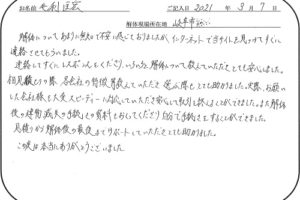 お名前 毛利 ご記入日 2021年3月7日
解体現場御住所 岐阜市
解体についてあまり無知で不安に感じておりましたが、インターネットで当サイトを見つけすぐに
連絡させてもらいました。
連絡してすぐにレスポンスもくださり、いろいろ解体について教えていただきとても安心しました。
相見積もりの際、各会社の特徴算教えていただき選ぶ際もとても助かりました。実際、お願い
した会社様も大変スピーディーに対応していただき安心して取引を終えることができました。また解体
後の建物滅失の手続きの資料もおくってくださり自分で手続きをすることができました。
見積りから解体後の最後までサポートしていただきとても助かりました。
この度は本当にありがとうございました。